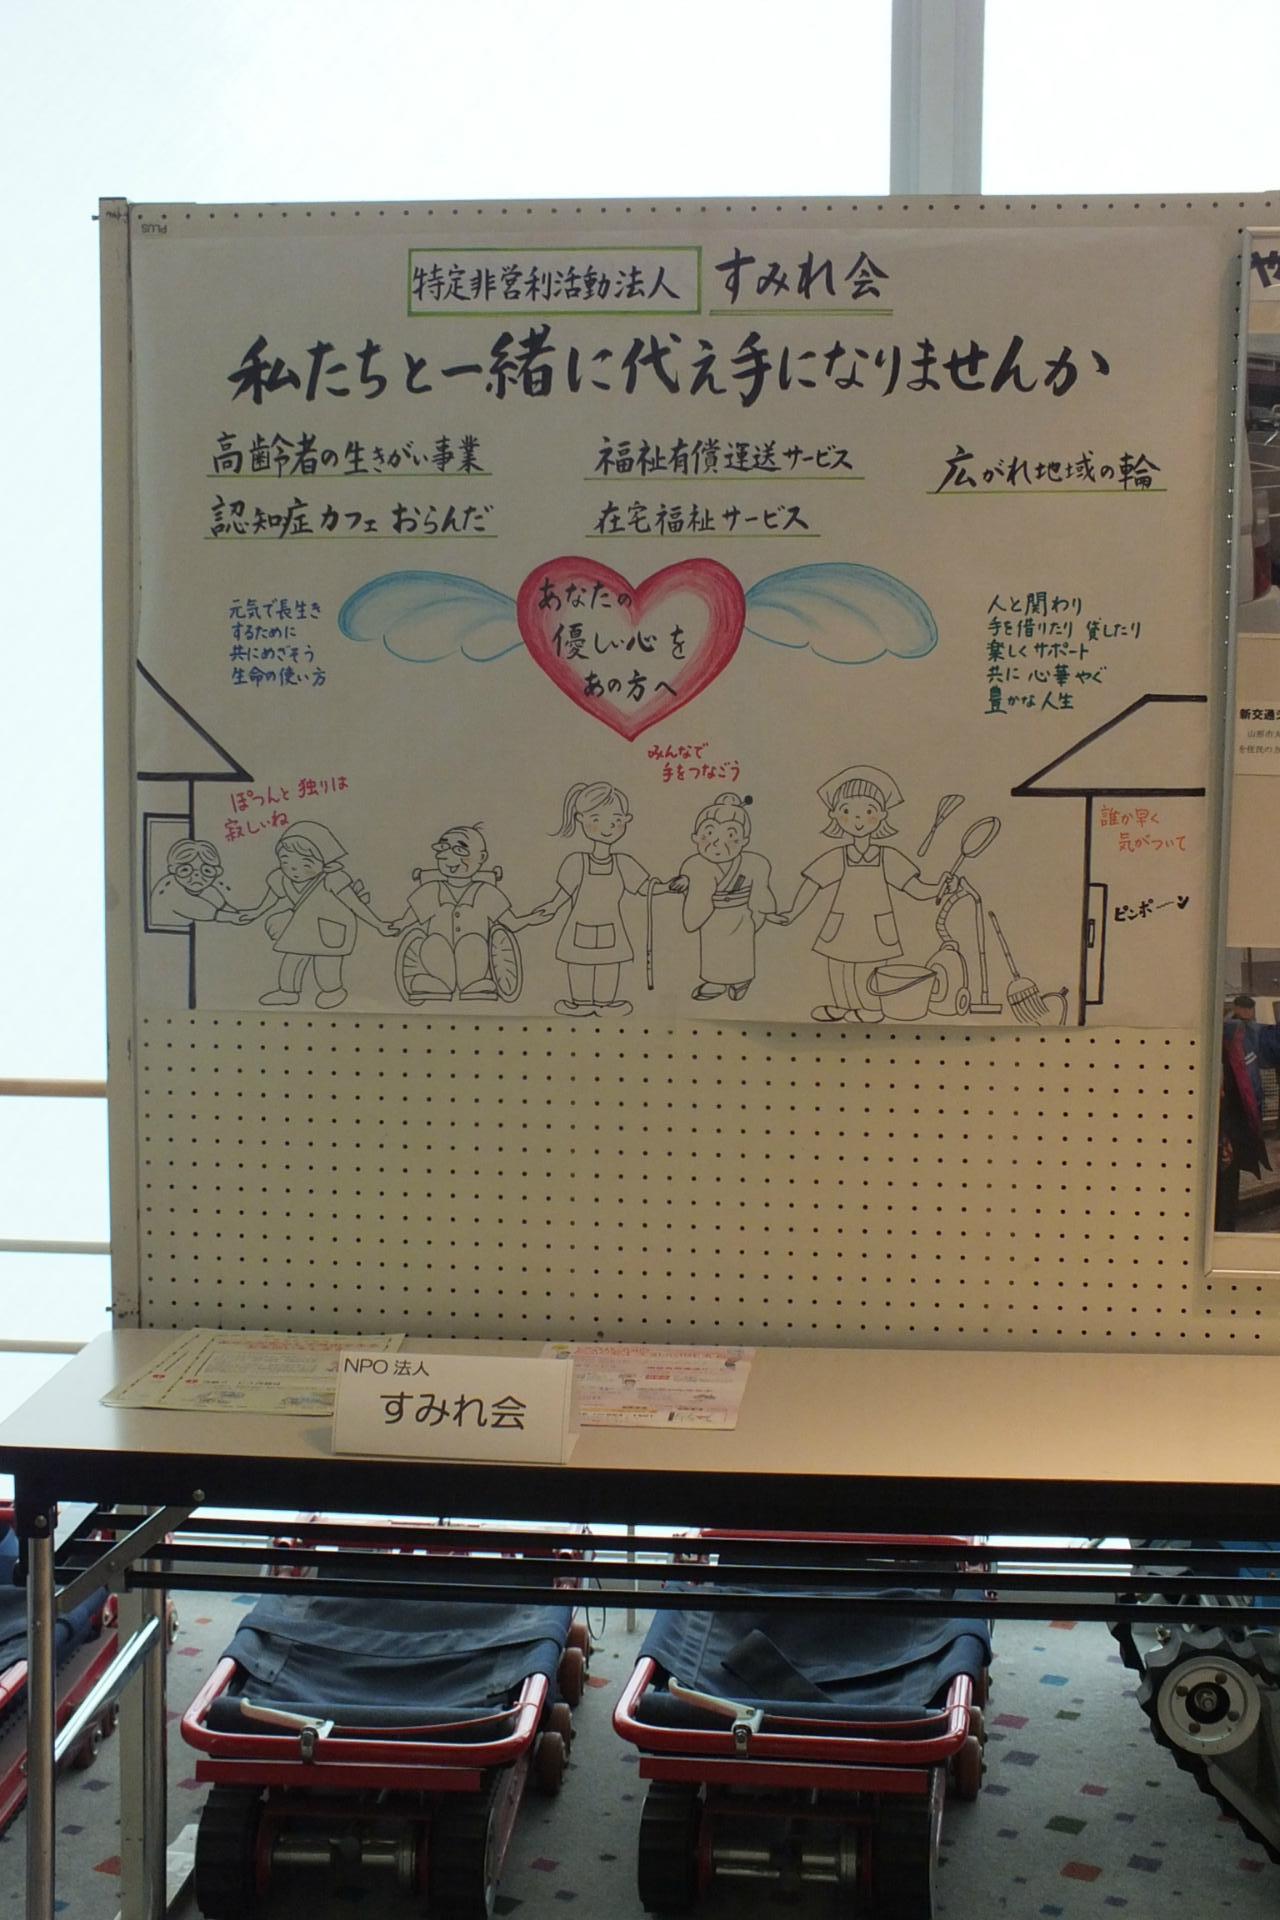 PLUS
特定非営利活動法人 すみれ会
私たちと一緒に代え手になりませんか
高齢者の生きがい事業
認知症カフェ おらんだ
福祉有償運送サービス
在宅福祉サービス
広がれ地域の輪
あなたの
優しい心を
あの方へ
元気で長生き
するために
共にめざそう
生命の使い方
人と関わり
手を借りたり 貸したり
楽しくサポート
共に 心華やぐ
豊かな人生
ぽつんと独りは
寂しいね
みんなで
手をつなごう
誰か早く
気がついて
ピンポーン
や
新交通シ
山形市
を住民の
NPO 法人
すみれ会